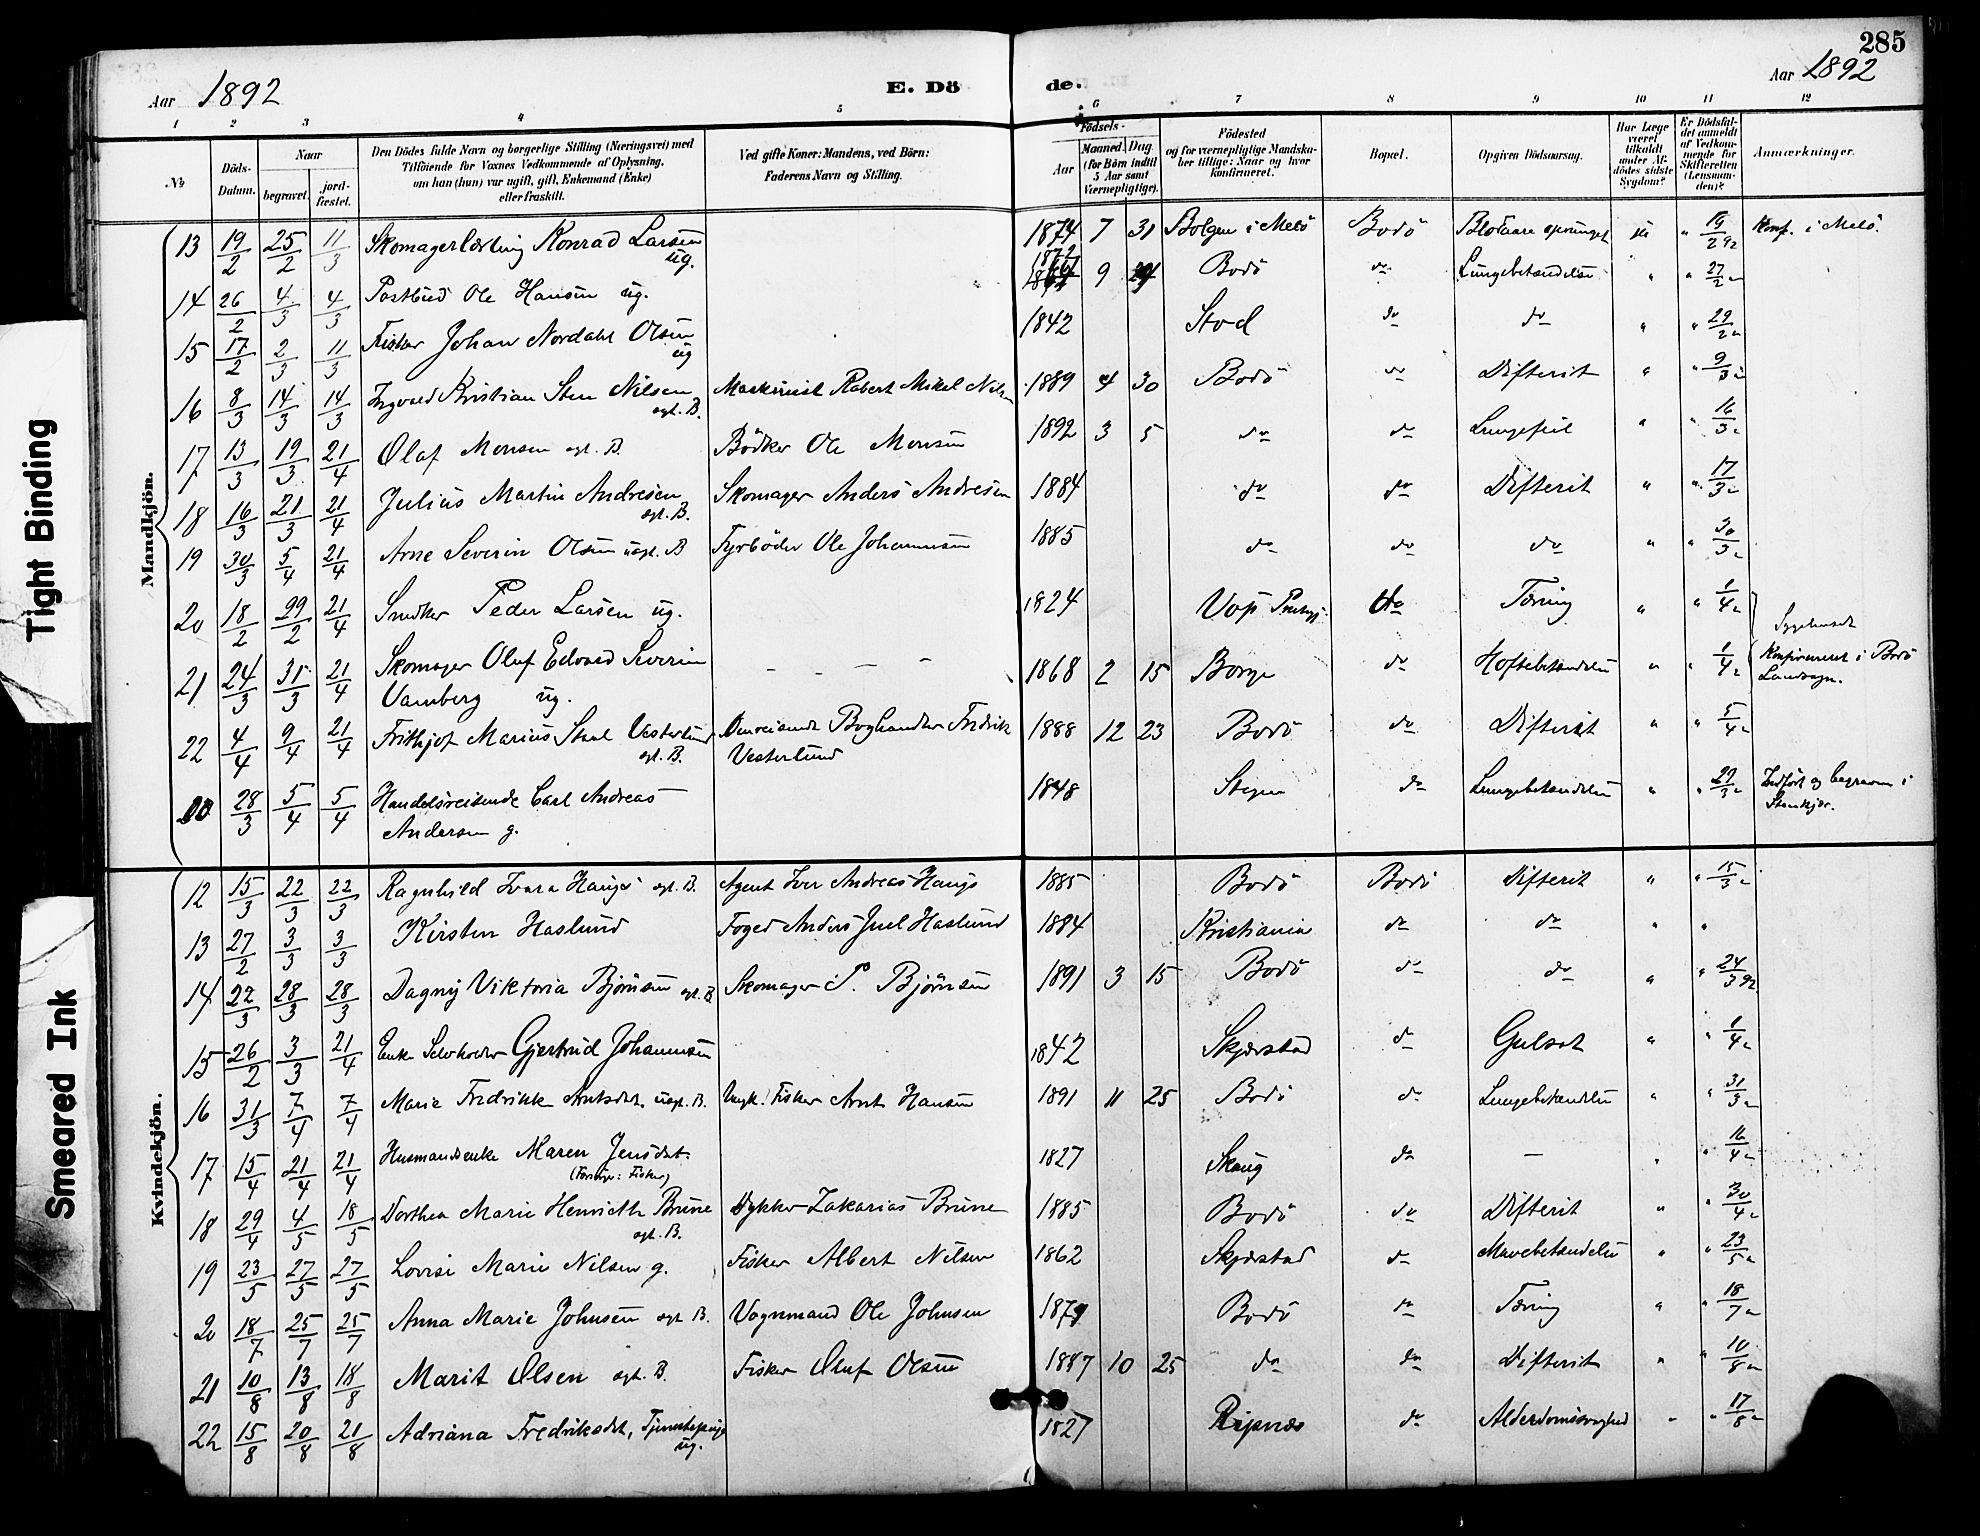 285
Aar 1892
E. Dö
de.
Aar 1892
1 2 3 4 5 6 7 8 9 10 11 12
No
Döds-
Datum.
Naar
begravet.
jord-
fæstet.
Den Dödes fulde Navn og borgerlige Stilling (Næringsvei) med
Tilföiende for Voxnes Vedkommende af Oplysning,
om han (hun) var ugift, gift, Enkemand (Enke)
eller fraskilt.
Ved gifte Koner: Mandens, ved Börn:
Faderens Navn og Stilling.
Födsels-
Aar
Maaned. Dag.
(for Börn indtil
5 Aar samt
Værnepligtige).
Födested
og for værnepligtige Mandska-
ber tillige: Naar og hvor
konfirmeret.
Bopæl.
Opgiven Dödsaarsag.
Har Læge
været
tilkaldt
under Af-
dödes sidste
Sygdom?
Er Dödsfal-
det anmeldt
af Vedkom-
mende for
Skifteretten
(Lensman-
den)?
Anmærkninger.
Mandkjön.
13 19/2 25/2 11/3 Skomagerlærling Konrad Larsen ug. 1874 7 31 Bolgen i Melö Bodö Blodaare sprunget " 19/2 92 Konf. i Melö.
14 26/2 4/3 4/3 Postbud Ole Hansen ug. 1872 9 Bodö do Lungebetændelse " " 27/2
15 17/2 2/3 11/3 Fisker Johan Nordahl Olsen ug 1842 Stod do do " " 29/2
16 8/3 14/3 14/3 Ingvard Kristian Sten Nilsen egt. B. Maskinist Robert Mikal Nilsen 1889 4 30 Bodö do Difterit " " 9/3
17 13/3 19/3 21/4 Olaf Monsen egt. B. Bödker Ole Monsen 1892 3 5 do do Lungefeil " " 16/3
18 16/3 21/3 21/4 Julius Martin Andresen egt. B. Skomager Anders Andresen 1884 do do Difterit " " 17/3
19 30/3 5/4 21/4 Arne Severin Olsen uegt. B Fyrböder Ole Johannesen 1885 do do do " " 30/3
20 18/2 29/2 21/4 Snedker Peder Larsen ug. 1824 do Tæring " " 1/4 Sygehuset
21 24/3 31/3 21/4 Skomager Oluf Edvard Severin
Vamberg ug. 1868 2 15 Borge do Hoftebetændelse " " 1/4 Konfirmeret i Bodö
Landsogn.
22 4/4 9/4 21/4 Frithjof Marius Vesterlund egt. B. Omreisende Boghandler Fredrik
Vesterlund 1888 12 23 Bodö do Difterit " " 5/4
28/3 5/4 5/4 Handelsreisende Carl Andreas
Andersen g. 1848 Stegen do Lungebetændelse " " 29/3 Indfört og begraven i
Stenkjær.
Kvindekjön.
12 15/3 22/3 22/3 Ragnhild Ivara Haugs egt. B. Agent Iver Andreas Haugs 1885 Bodö Bodö Difterit " " 15/3
13 27/2 3/3 3/3 Kirsten Haslund Foged Anders Juel Haslund 1884 Kristiania do do " "
14 22/3 28/3 28/3 Dagny Viktoria Bjørnsen egt. B Skomager P. Bjørnsen 1891 3 15 Bodö do do " " 24/3 92.
15 26/2 3/3 21/4 Enke Gjertrud Johannesen 1842 Skjerstad do Gulsot " " 1/4
16 31/3 7/4 7/4 Marie Fredrikke Antsdtr. uegt. B. Ungk. Fisker Arnt Hansen 1891 11 25 Bodö do Lungebetændelse " " 31/3
17 15/4 21/4 21/4 Husmandsenke Maren Jensdtr.
(Forsörger: Fisker) 1827 Skaug do — " 16/4
18 29/4 4/5 18/5 Dorthea Marie Henriette Brune egt. B. Dykker Zakarias Brune 1885 Bodö do Difterit " " 30/4
19 23/5 27/5 27/5 Lovise Marie Nilsen g. Fisker Albert Nilsen 1862 Skjerstad do Mavebetændelse " " 23/5
20 18/7 25/7 25/7 Anna Marie Johnsen egt. B. Vognmand Ole Johnsen Bodö do Tæring " " 18/7
21 10/8 13/8 18/8 Marit Olsen egt. B. Fisker Oluf Olsen 1887 10 25 do do Difterit " " 10/8
22 15/8 20/8 21/8 Adriana Fredriksdtr, Tjenestepige ug. 1827 Ripnæs do Alderdomssvaghed " " 17/8
Tight Binding
Smeared Ink